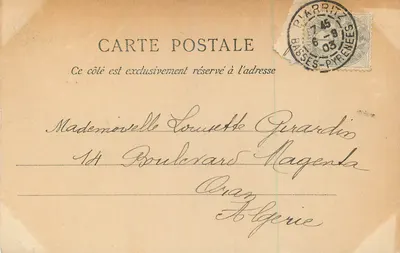 BIARRITZ
7 45
6 - 9
03
BASSES-PYRENEES
CARTE POSTALE
Ce côté est exclusivement réservé à l'adresse
Mademoiselle Louisette Girardin
14 Boulevard Magenta
Oran
Algérie